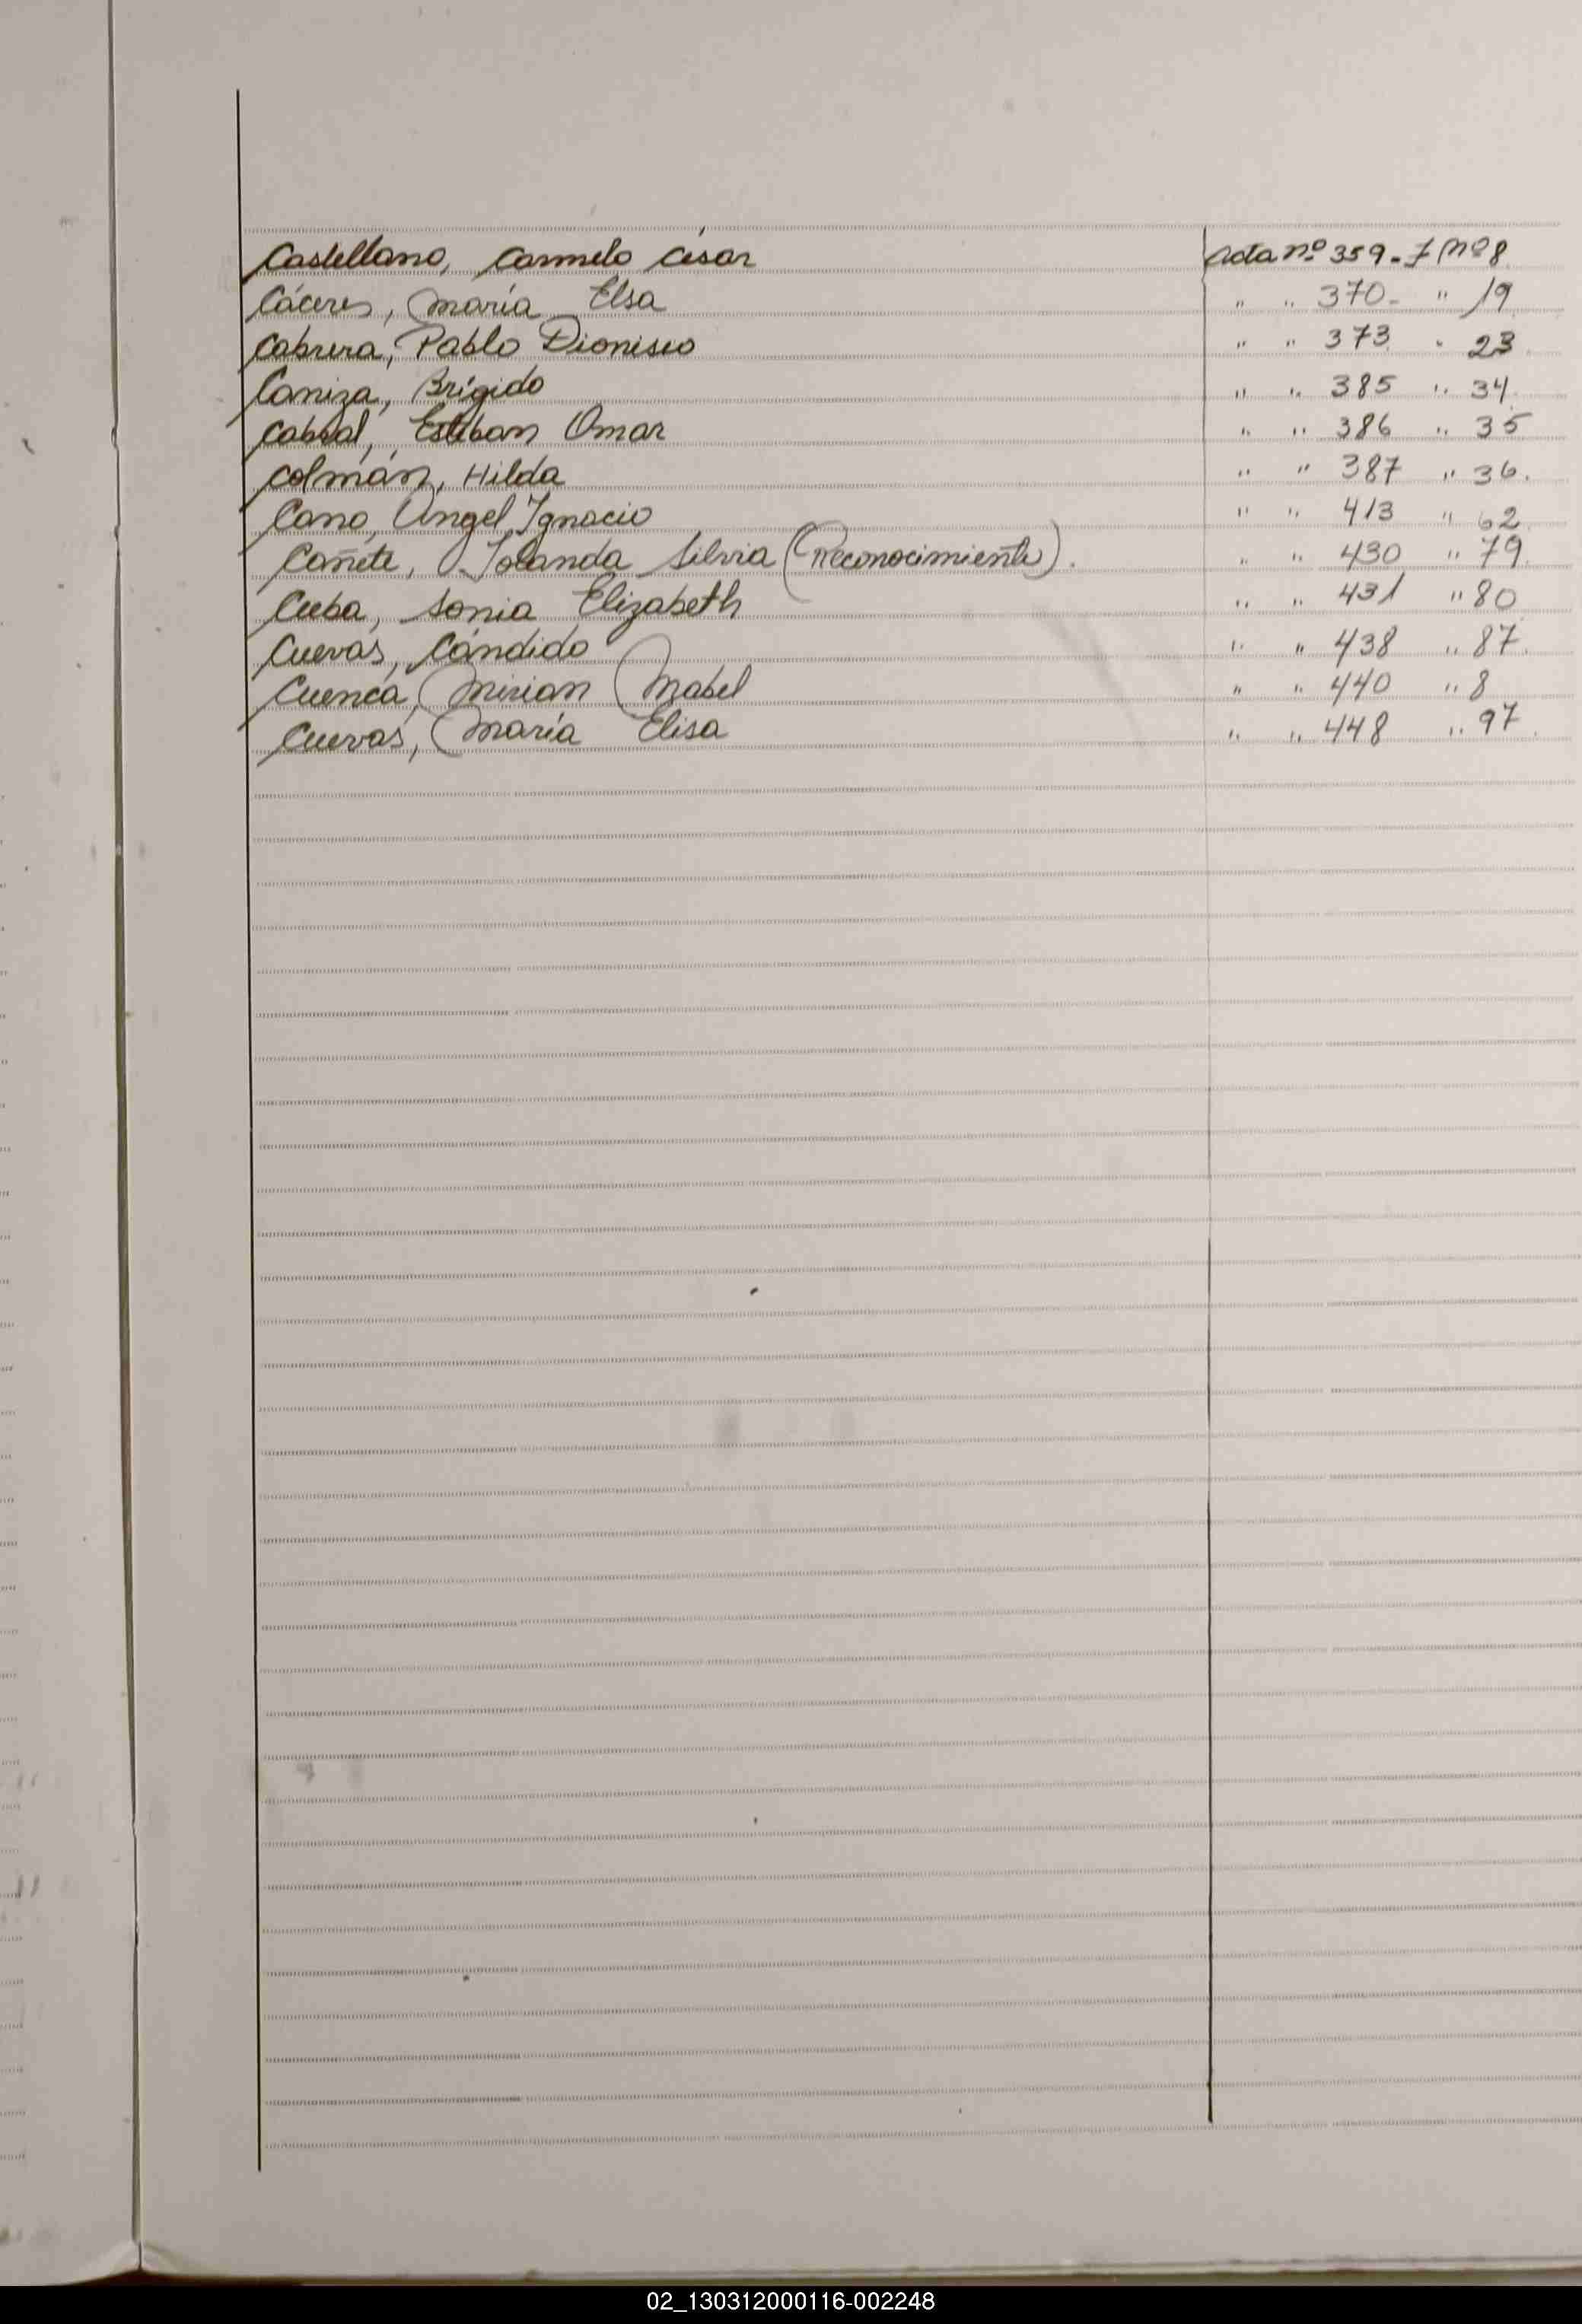 Castellano, Carmelo César Acta nº 359 - F nº 8
Cáceres, María Elsa " " 370 - " 19
Cabrera, Pablo Dionisio " " 373 " 23
Caniza, Brígido " " 385 " 34
Cabral, Esteban Omar " " 386 " 35
Colmán, Hilda " " 387 " 36.
Cano, Angel Ignacio " " 413 " 62
Cañete, Iolanda Silvia (Reconocimiento). " " 430 " 79
Cuba, Sonia Elizabeth " " 431 " 80
Cuevas, Cándido " " 438 " 87.
Cuenca, Mirian Mabel " " 440 " 8
Cuevas, María Elisa " " 448 " 97.
02_130312000116-002248